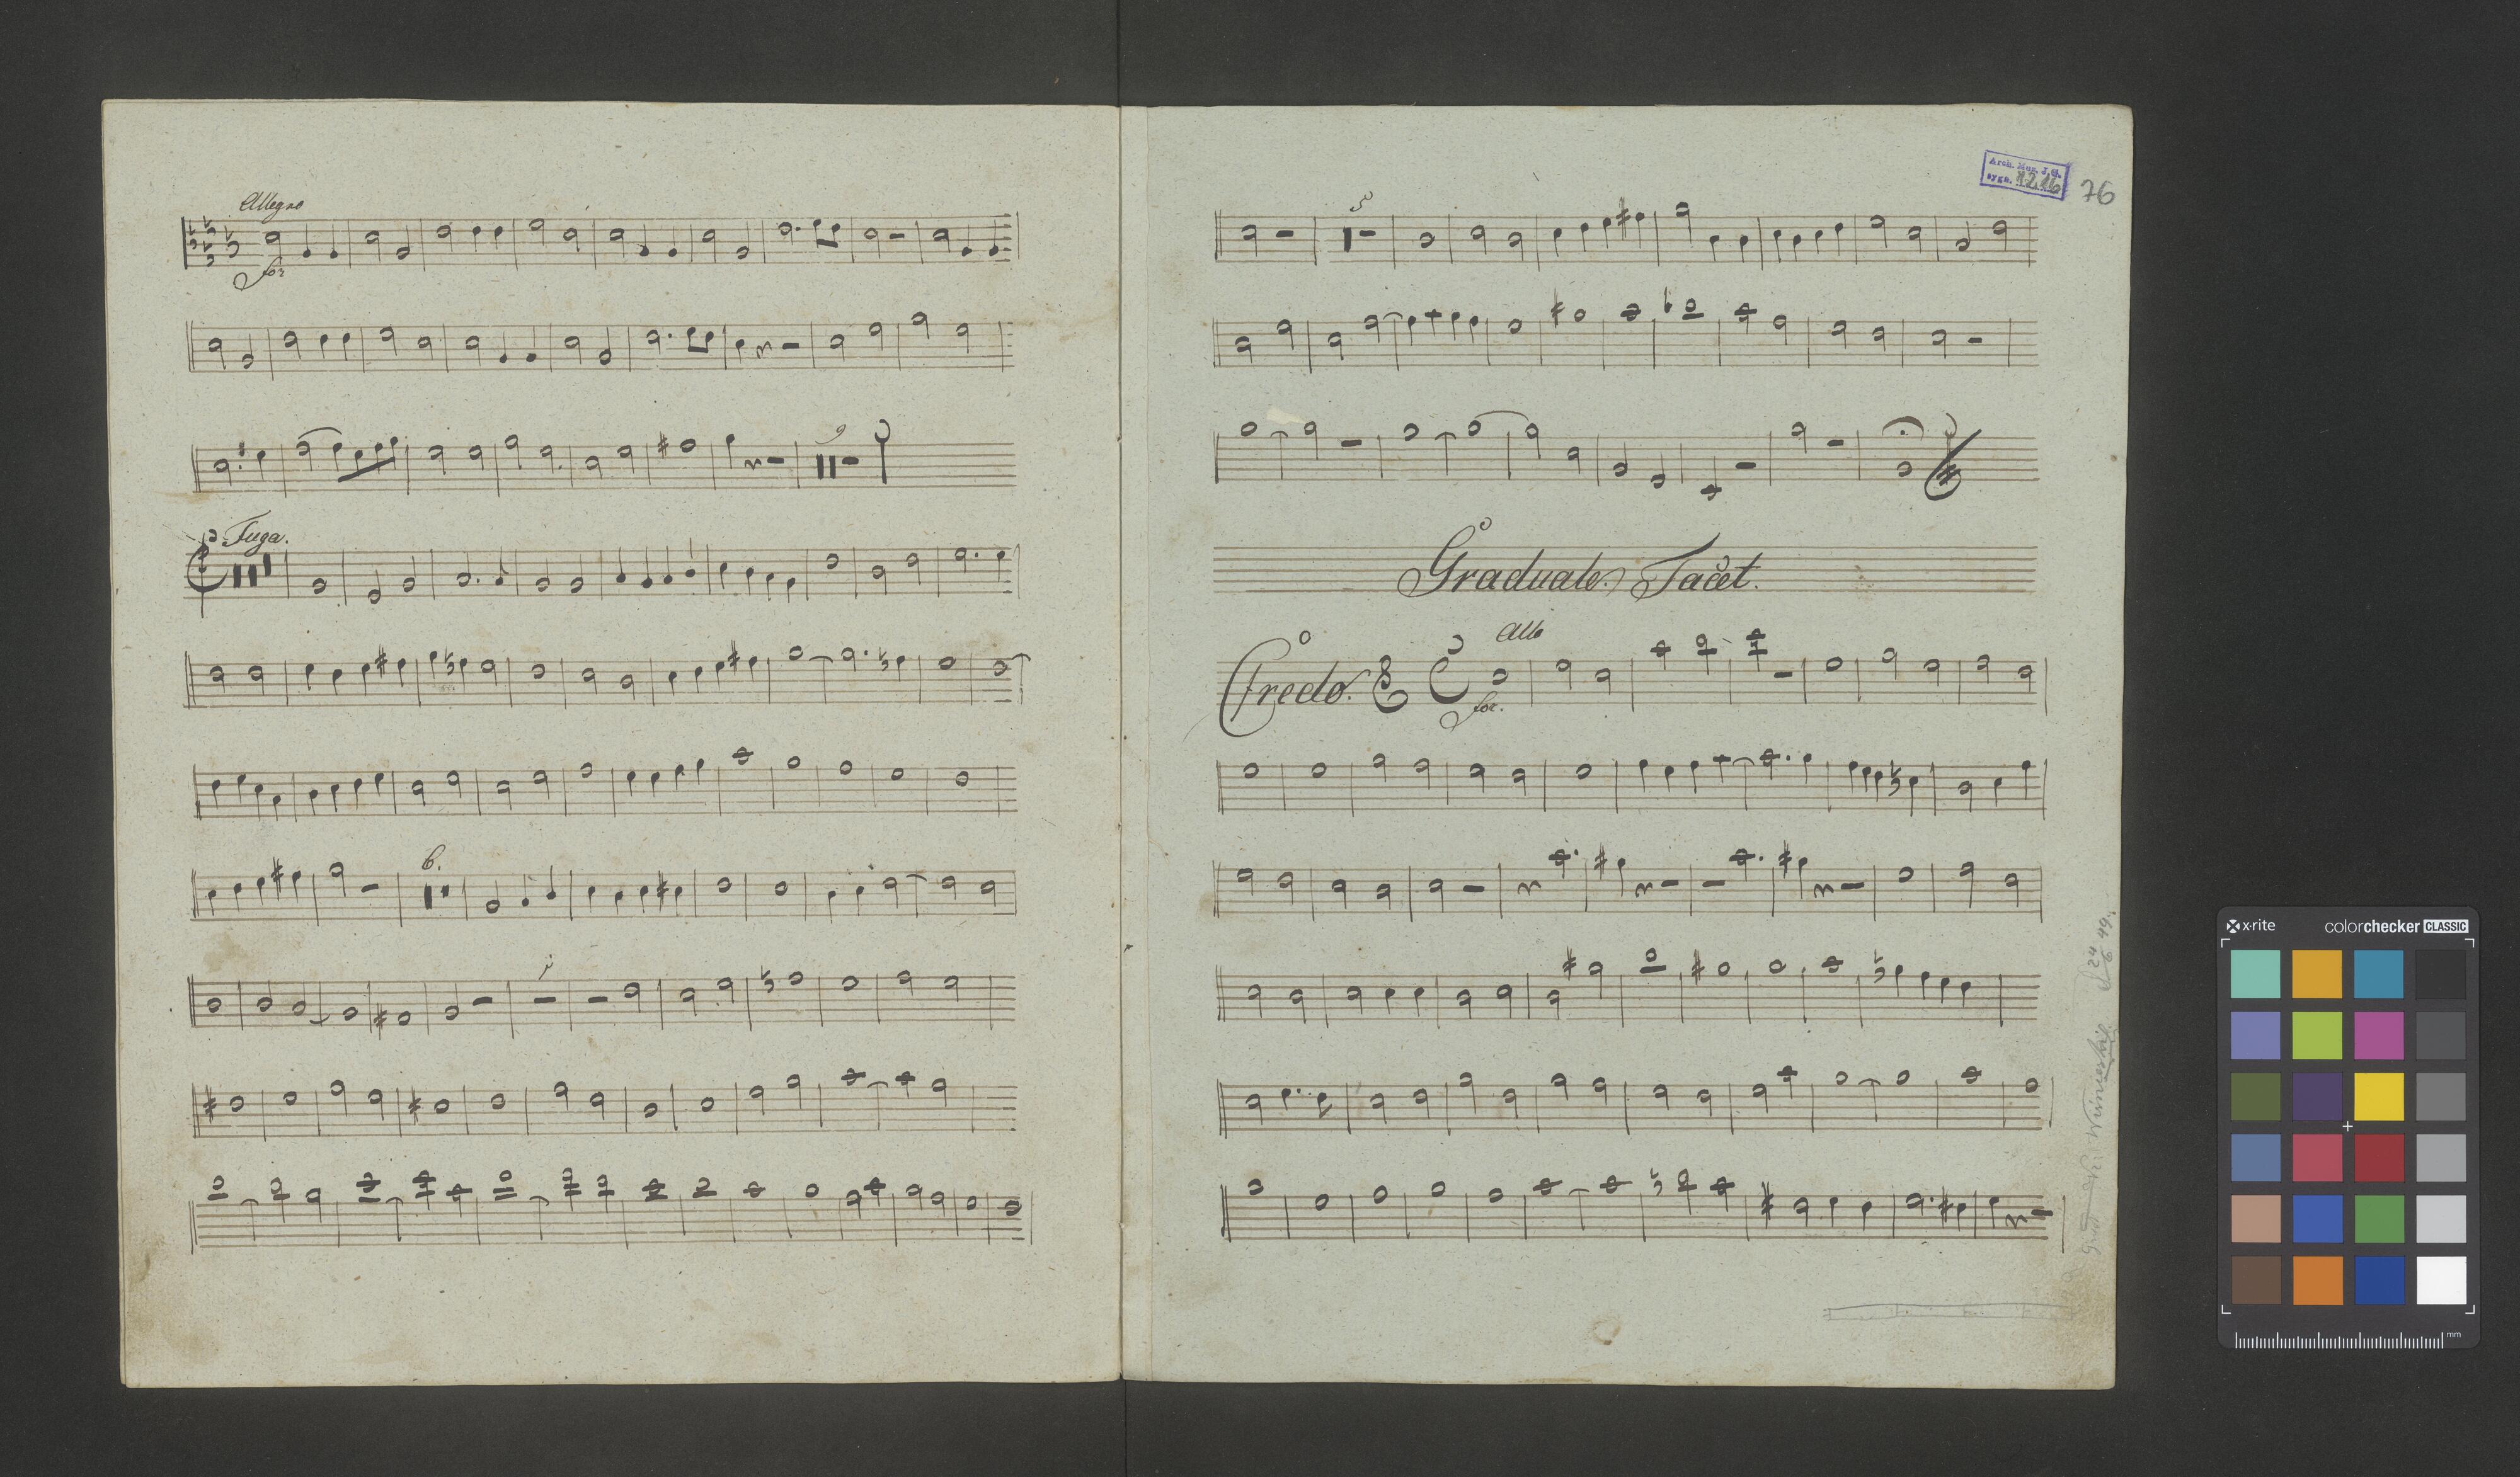 Allegro
for
9
Fuga.
6.
Arch. Muz. J. G.
sygn. 1216
76
5
Graduale. Tacet.
Credo. C Allo
for.
24
6 49.
x-rite colorchecker CLASSIC
mm